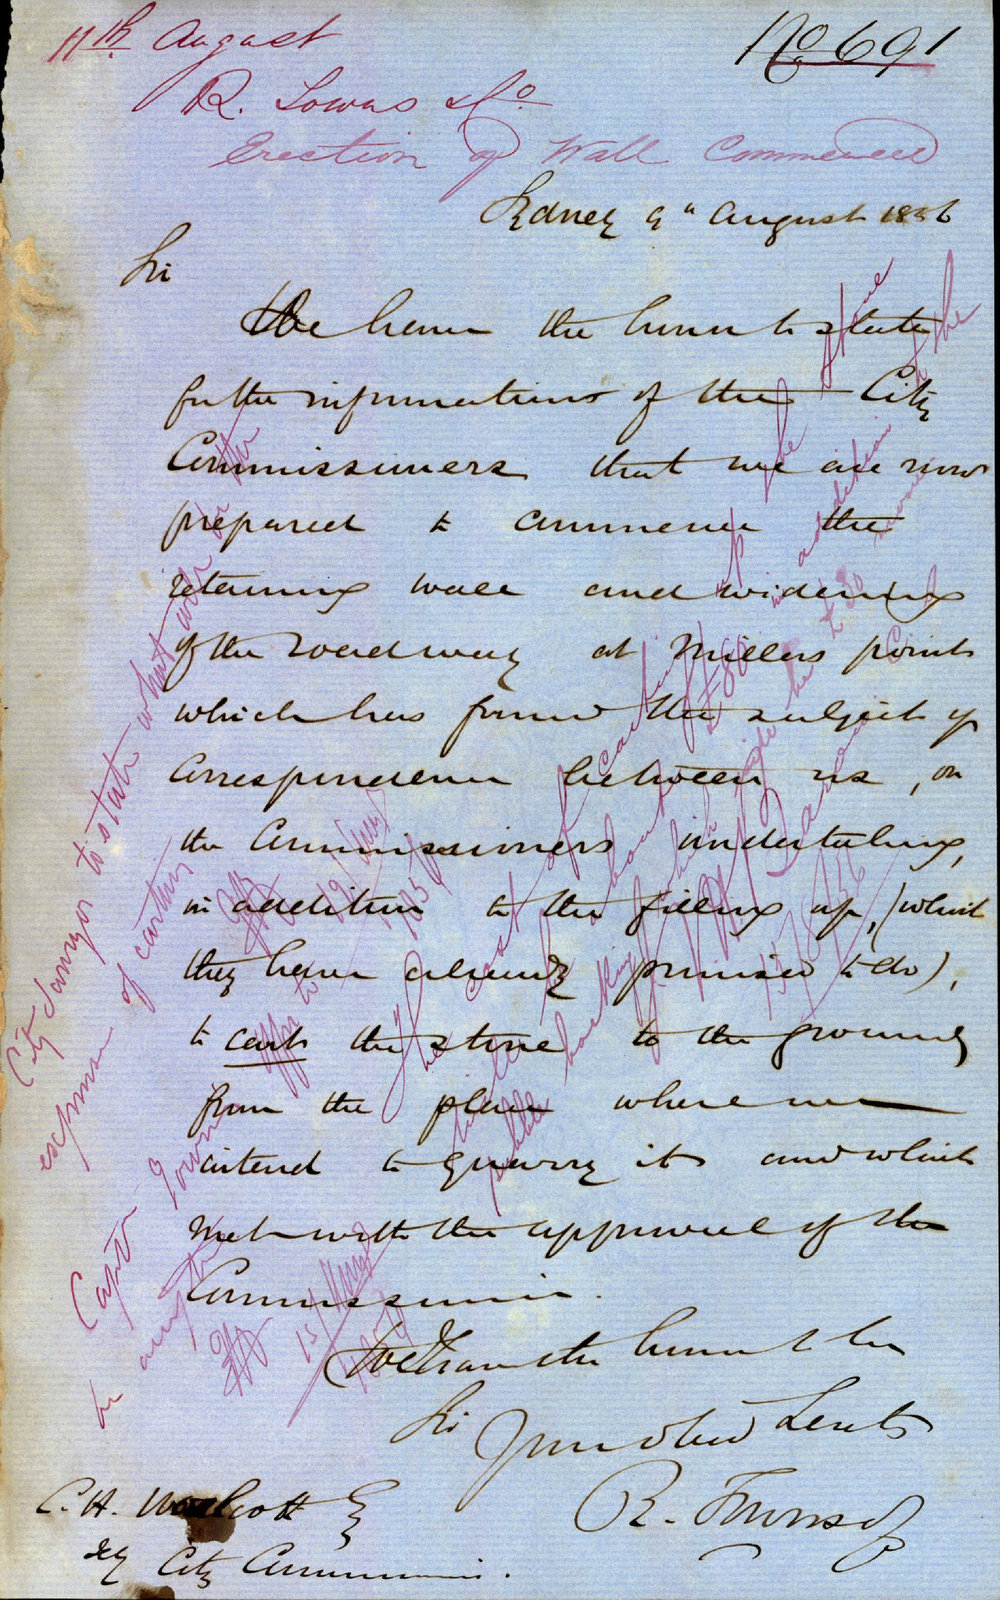 11th August
No 691
R. Towns & Co
Erection of Wall Commenced
Sydney 9th August 1856
Sir
We have the honor to state
for the information of the City
Commissioners that we are now
prepared to commence the
retaining wall and widening
of the roadway at Millers point
which has formed the subject of
Correspondence between us, on
the Commissioners undertaking,
in addition to the filling up, (which
they have already promised to do),
to cart the stone to the ground
from the place where we
intend to quarry it and which
met with the approval of the
Commissioner.
We have the honor to be
Sir
Your obed Servts
R. Towns & Co
C. H. Woolcott Esq
Secy City Commissioners.
City Surveyor to state what will be the
expense of cartage
The cost of carting the stone
will be about £80 in addition to the
Capt Towns